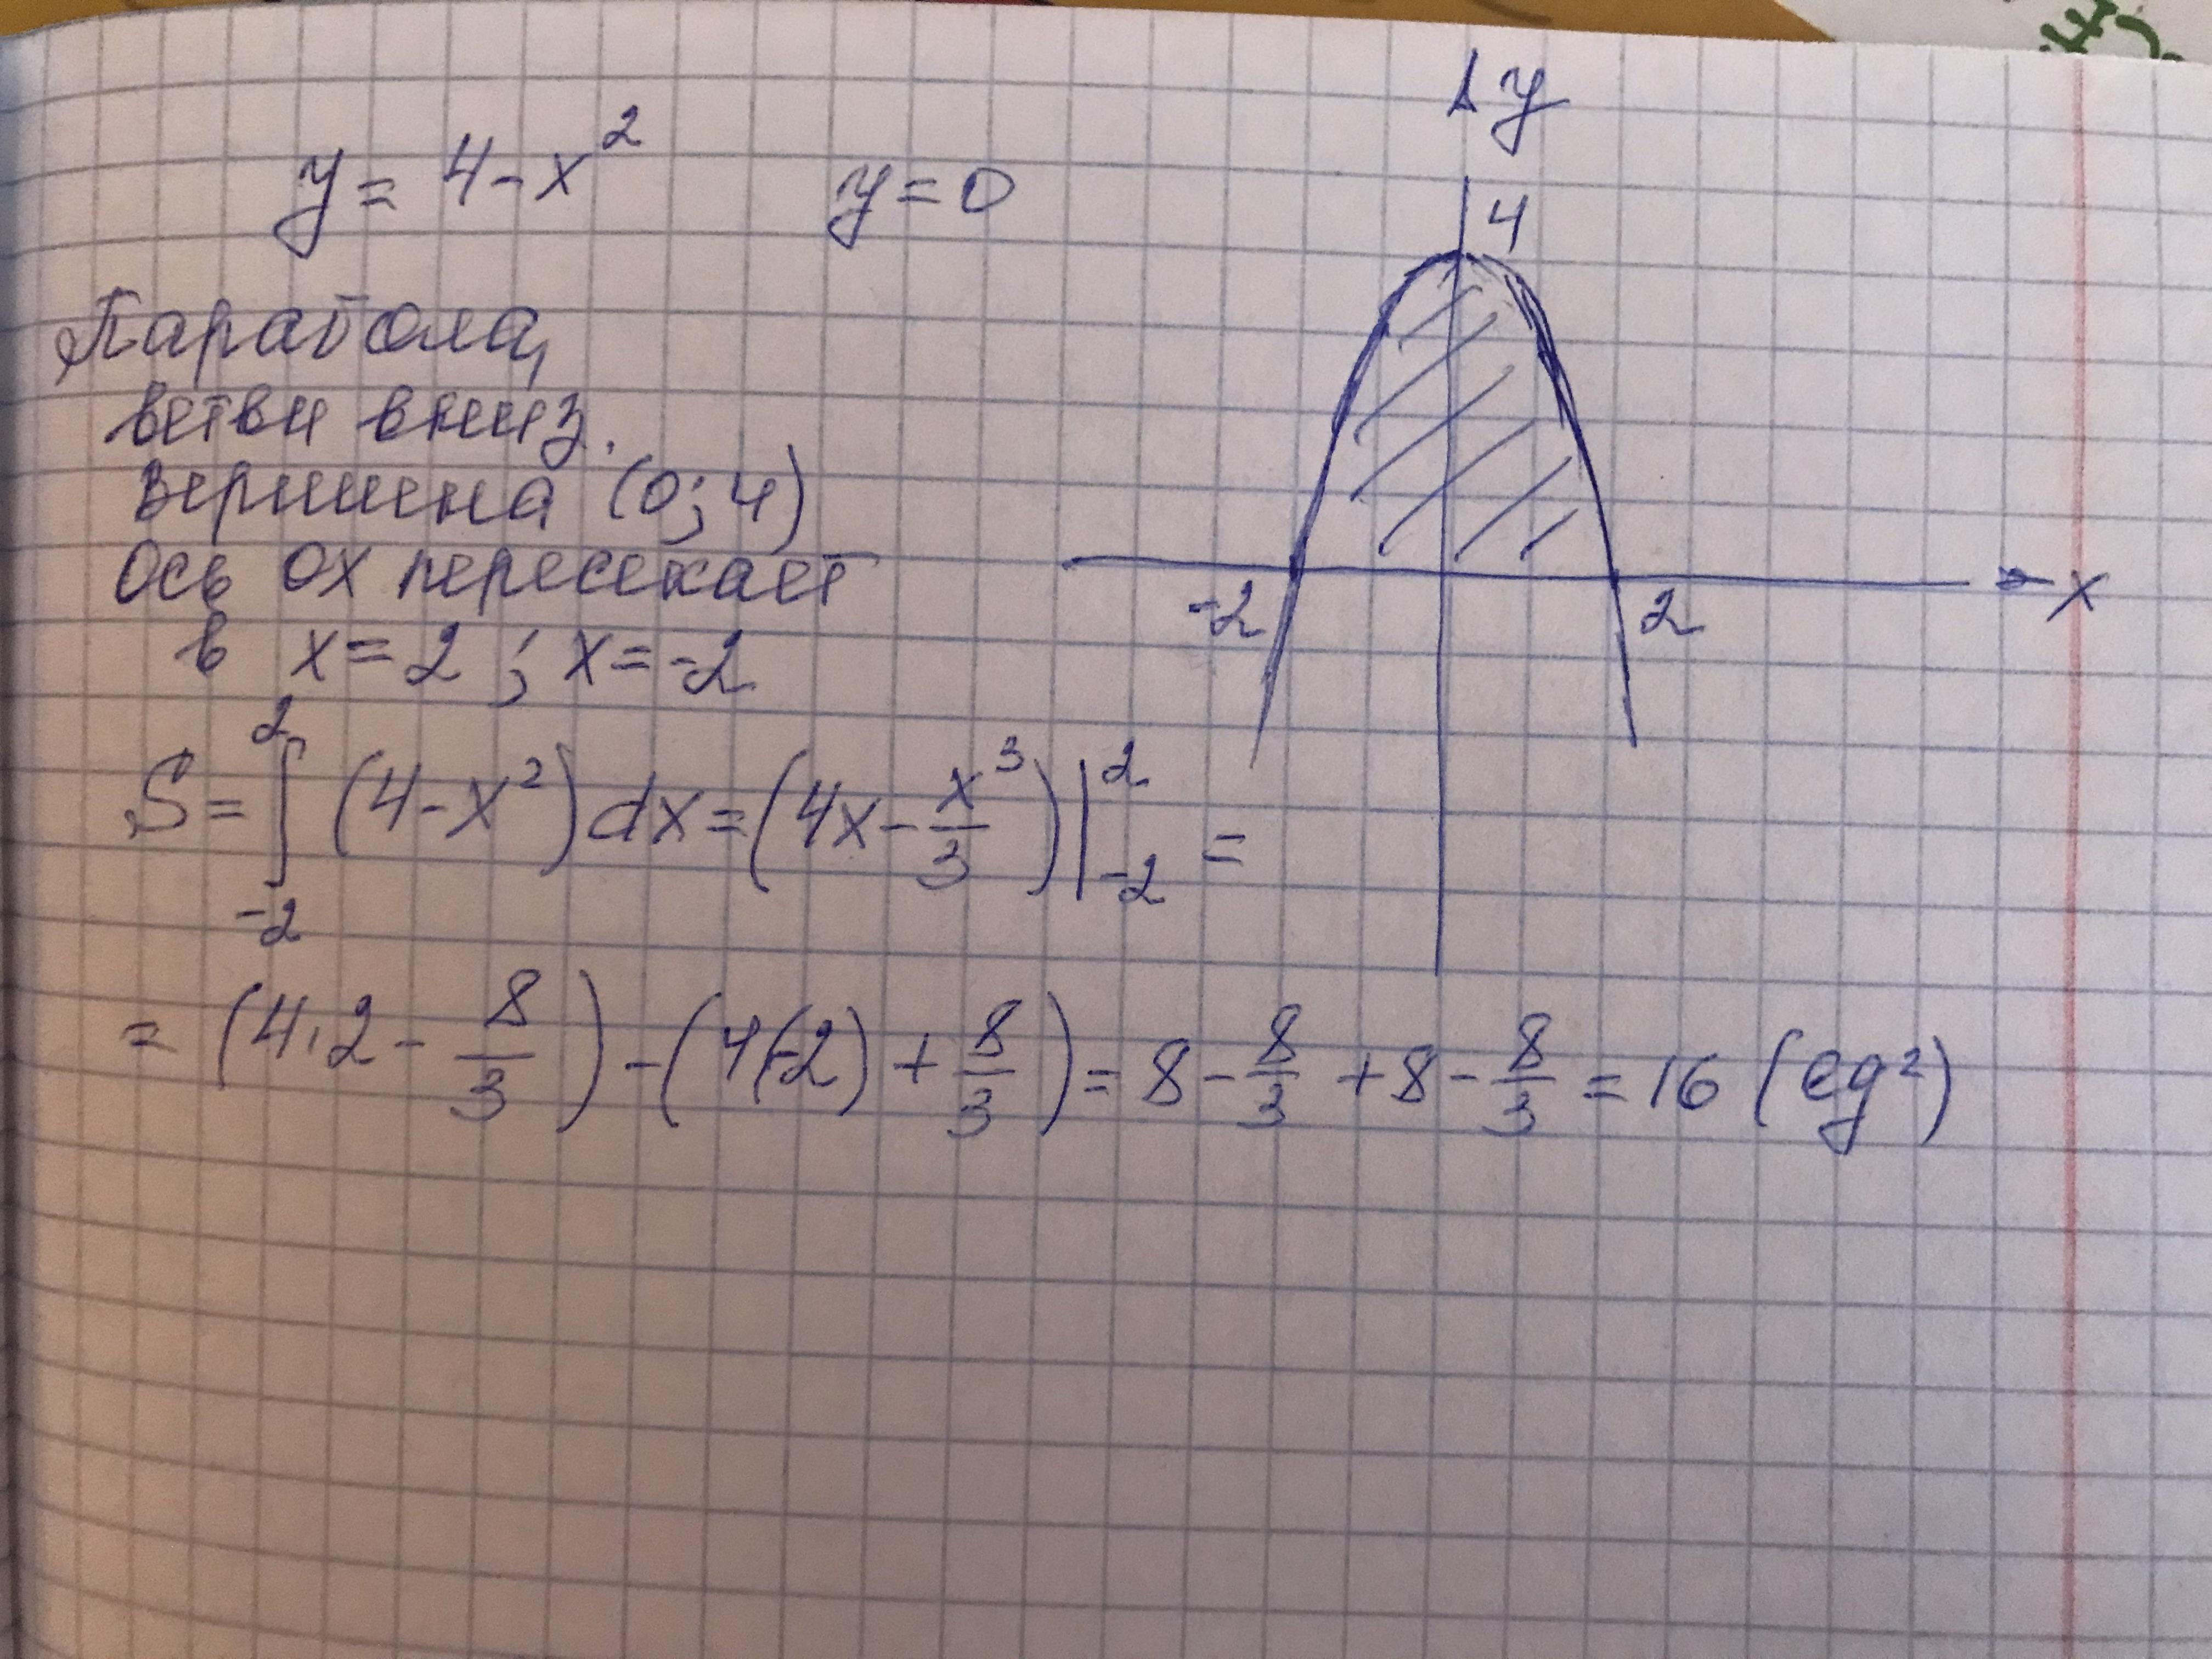 y = 4 - x² y = 0
Парабола,
ветви вниз.
вершина (0; 4)
ось ох пересекает
в x = 2 ; x = -2
y
4
-2 2 x
S = ∫₋₂² (4 - x²) dx = (4x - x³/3) |₋₂² =
= (4·2 - 8/3) - (4(-2) + 8/3) = 8 - 8/3 + 8 - 8/3 = 16 (ед²)